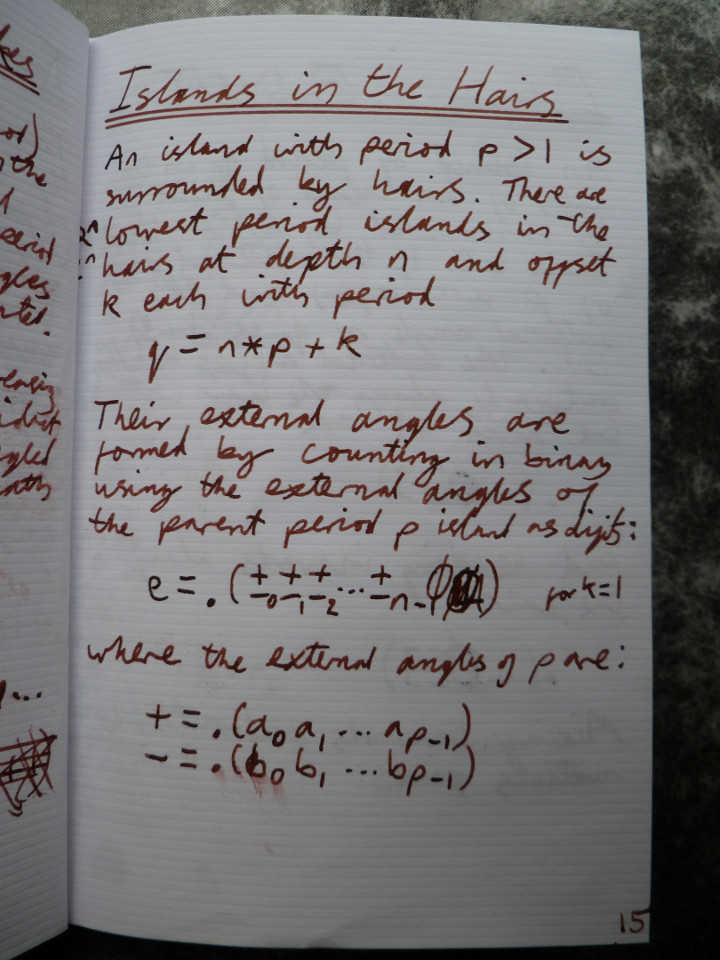 Islands in the Hairs
An island with period p > 1 is
surrounded by hairs. There are
2^n lowest period islands in the
hairs at depth n and offset
k each with period
q = n*p + k
Their external angles are
formed by counting in binary
using the external angles of
the parent period p island as digits:
e = .(±₀ ±₁ ±₂ ... ±ₙ₋₁) for k=1
where the external angles of p are:
+ = .(a₀ a₁ ... aₚ₋₁)
- = .(b₀ b₁ ... bₚ₋₁)
15